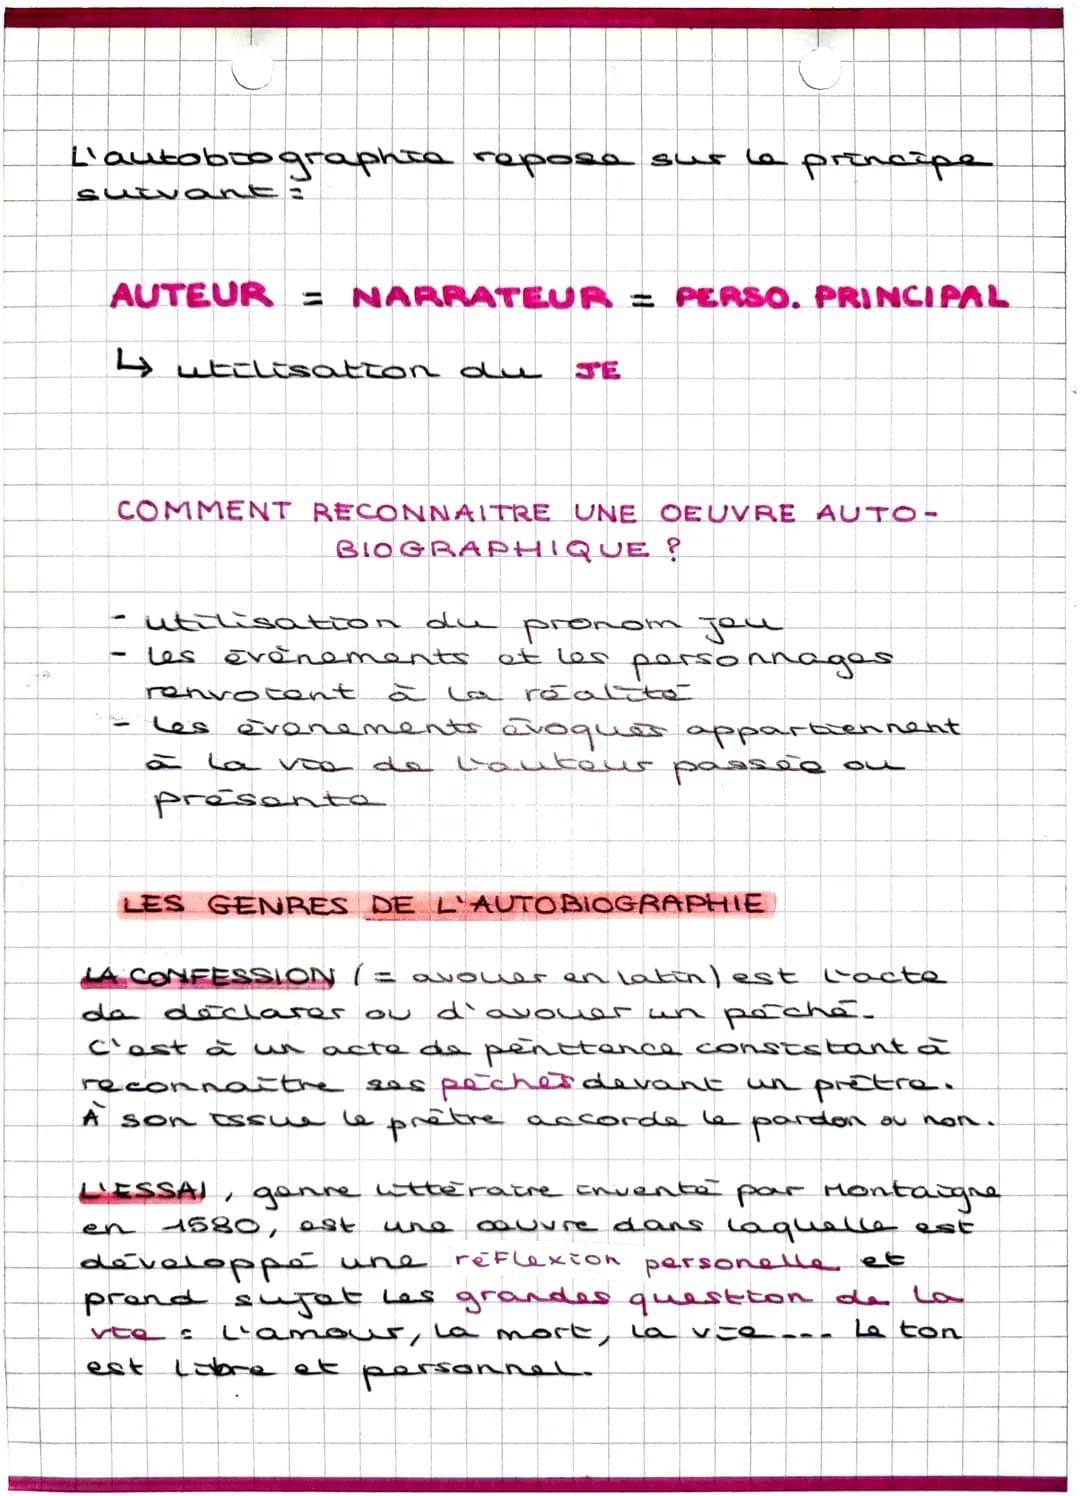 L'autobiographie repose sur le principe
suivant :
AUTEUR = NARRATEUR = PERSO. PRINCIPAL
↳ utilisation du JE
COMMENT RECONNAITRE UNE OEUVRE AUTO-
BIOGRAPHIQUE ?
- utilisation du pronom jeu
- les évènements et les personnages
renvoient à la réalité
- les évènements évoqués appartiennent
à la vie de l'auteur passée ou
présente
LES GENRES DE L'AUTOBIOGRAPHIE
LA CONFESSION (= avouer en latin) est l'acte
de déclarer ou d'avouer un péché.
C'est à un acte de pénitence consistant à
reconnaître ses péchés devant un prêtre.
À son issue le prêtre accorde le pardon ou non.
L'ESSAI, genre littéraire inventé par Montaigne
en 1580, est une œuvre dans laquelle est
développé une réflexion personelle et
prend sujet les grandes question de la
vie : l'amour, la mort, la vie... Le ton
est libre et personnel.